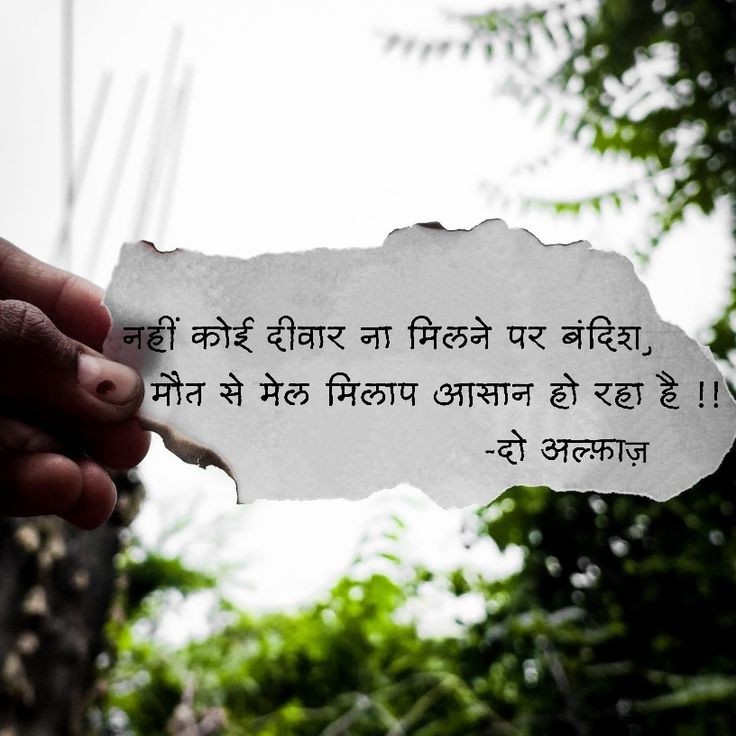 नहीं कोई दीवार ना मिलने पर बंदिश,
मौत से मेल मिलाप आसान हो रहा है !!
-दो अल्फ़ाज़